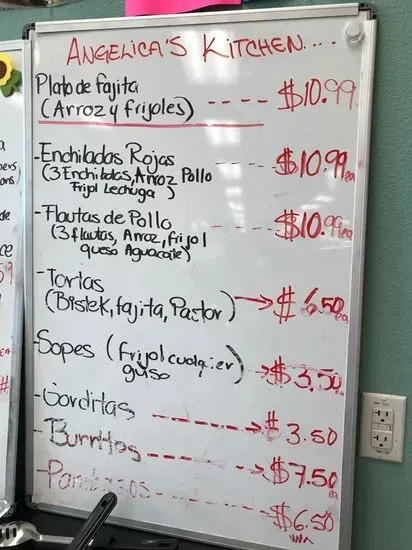 ANGELICA'S KITCHEN....
Plato de fajita
(Arroz y frijoles) ---- $10.99
-Enchiladas Rojas ---- $10.99 ea
(3 Enchiladas, Arroz Pollo
Frijol Lechuga)
-Flautas de Pollo ---- $10.99 ea
(3 flautas, Arroz, frijol
queso Aguacate)
-Tortas
(Bistek, fajita, Pastor) → $6.50 ea
-Sopes (frijol cualqier → $3.50 ea
guiso)
-Gorditas ---- $3.50
-Burritos ---- $7.50 ea
-Pambasos ---- $6.50